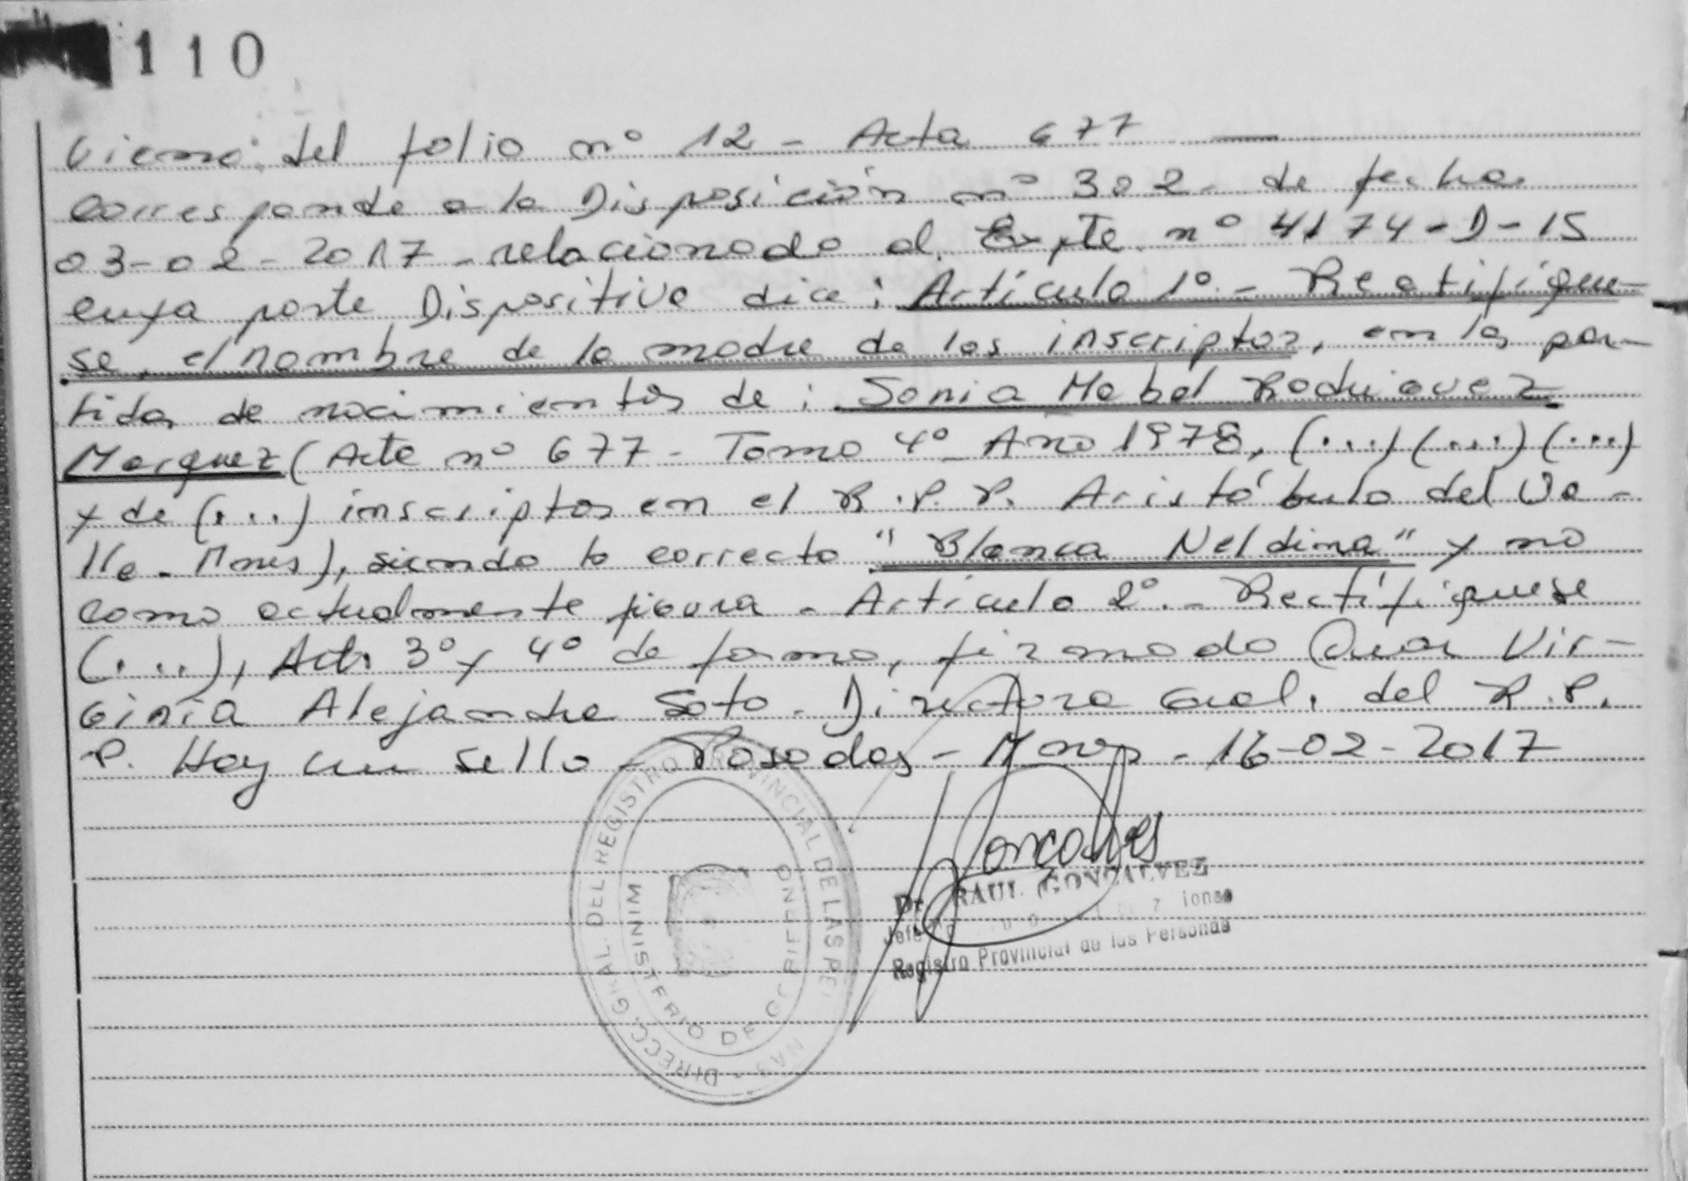 110
Viene: del folio nº 12 - Acta 677 —
corresponde a la Disposición nº 302 - de fecha
03-02-2017 - relacionado al Expte nº 4174-D-15
cuya parte Dispositiva dice: Artículo 1º - Rectifíque-
se, el nombre de la madre de los inscriptos, en las par-
tidas de nacimientos de: Sonia Mabel Rodriguez
Marquez (Acta nº 677 - Tomo 4º - Año 1978, (...) (...) (...)
y de (...) inscriptos en el R.P.P. Aristóbulo del Va-
lle - Mnes), siendo lo correcto "Blanca Neldina" y no
como actualmente figura - Artículo 2º - Rectifíquese
(...), Art. 3º y 4º de forma, firmado Virginia
Alejandra Soto - Directora Gral. del R.P.
P. Hay un sello - Posadas - Mnes - 16-02-2017
Goncalves
Dr. RAUL GONCALVEZ
Jefe
Registro Provincial de las Personas
DIRECC. GRAL. DEL REGISTRO PROVINCIAL DE LAS PER
MINISTERIO DE GOBIERNO